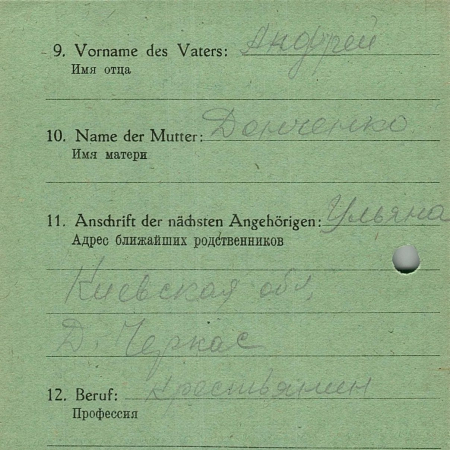 9. Vorname des Vaters: Андрей
Имя отца
10. Name der Mutter: Демченко
Имя матери
11. Anschrift der nächsten Angehörigen: Ульяна
Адрес ближайших родственников
Киевская обл.
Д. Черкас
12. Beruf: Крестьянин
Профессия